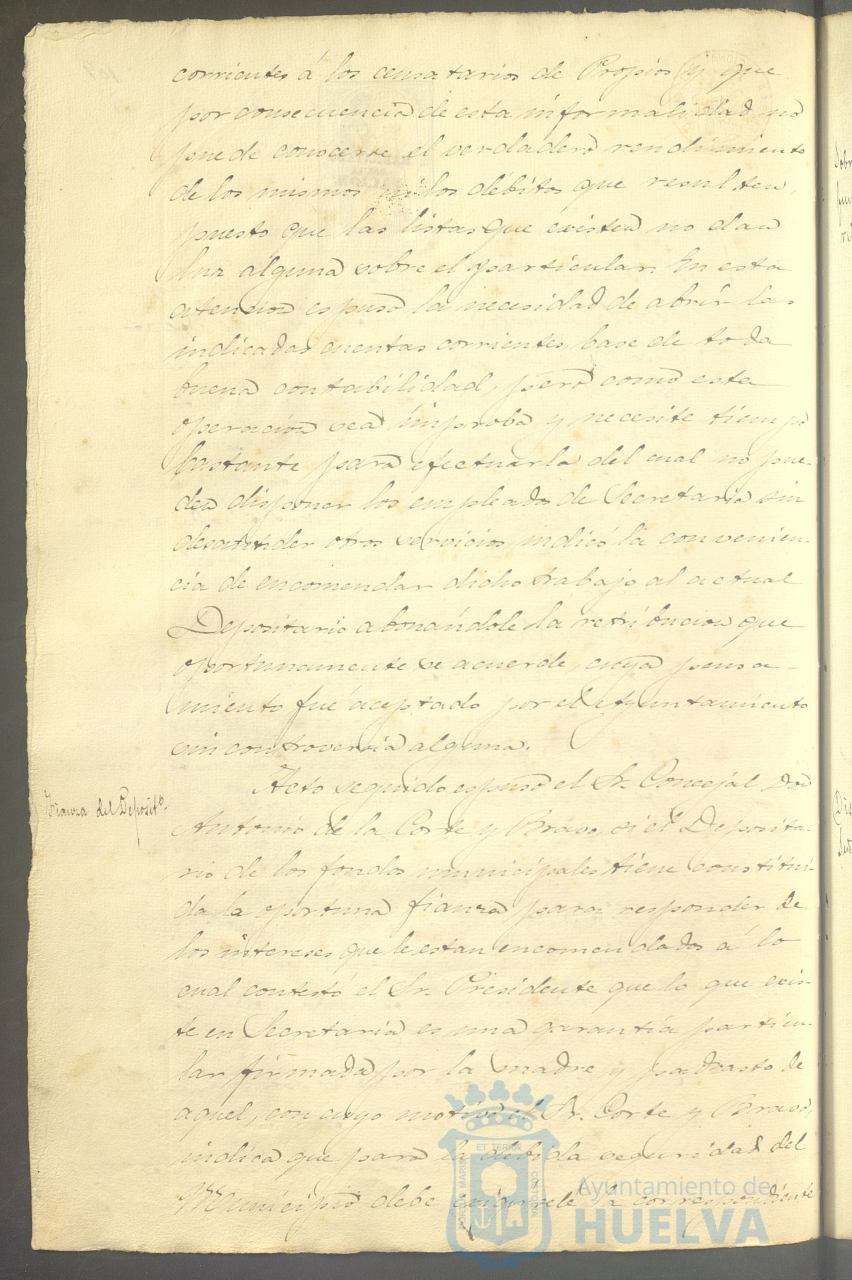 corrientes á los censatarios de Propios y que
por consecuencia de esta informalidad no
puede conocerse el verdadero rendimiento
de los mismos ni los débitos que resulten,
puesto que las listas que existen no dan
luz alguna sobre el particular. En esta
atencion espuso la necesidad de abrir las
indicadas cuentas corrientes, base de toda
buena contabilidad, pero como esta
operacion sea improba y necesite tiempo
bastante para efectuarla del cual no pue-
den disponer los empleados de Secretaria sin
desatender otros servicios, indicó la convenien-
cia de encomendar dicho trabajo al actual
Depositario abonandole la retribucion que
oportunamente se acuerde, cuyo pensa-
miento fué aceptado por el Ayuntamiento
sin controversia alguna.
Fianza del Deposito.
Acto seguido espuso el Sr. Concejal Don
Antonio de la Corte y Bravo, si el Deposita-
rio de los fondos municipales tiene constitui-
da la oportuna fianza para responder de
los intereses que le estan encomendados á lo
cual contestó el Sr. Presidente que lo que exis-
te en Secretaria es una garantía particu-
lar firmada por la madre y padrasto de
aquel, con cuyo motivo el Sr. Corte y Bravo,
indica que para la debida seguridad del
Municipio debe exigirsele la correspondiente
Ayuntamiento de
HUELVA